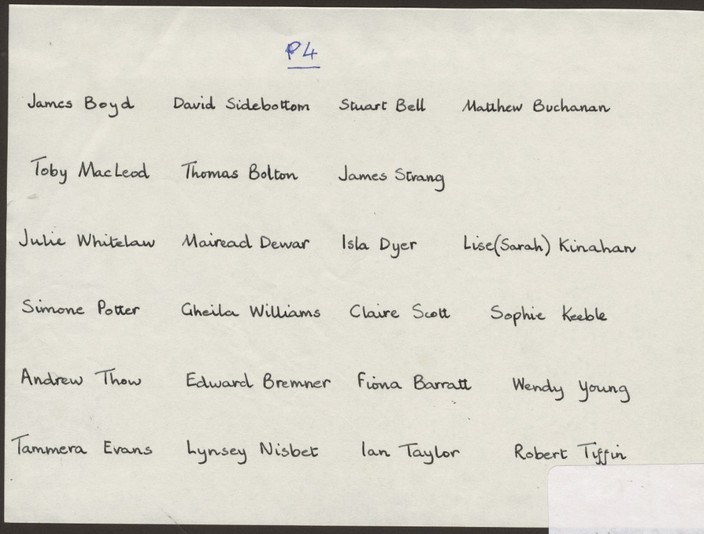 P4
James Boyd David Sidebottom Stuart Bell Matthew Buchanan
Toby MacLeod Thomas Bolton James Strang
Julie Whitelaw Mairead Dewar Isla Dyer Lise(Sarah) Kinahan
Simone Potter Gheila Williams Claire Scott Sophie Keeble
Andrew Thow Edward Bremner Fiona Barratt Wendy Young
Tammera Evans Lynsey Nisbet Ian Taylor Robert Tiffin